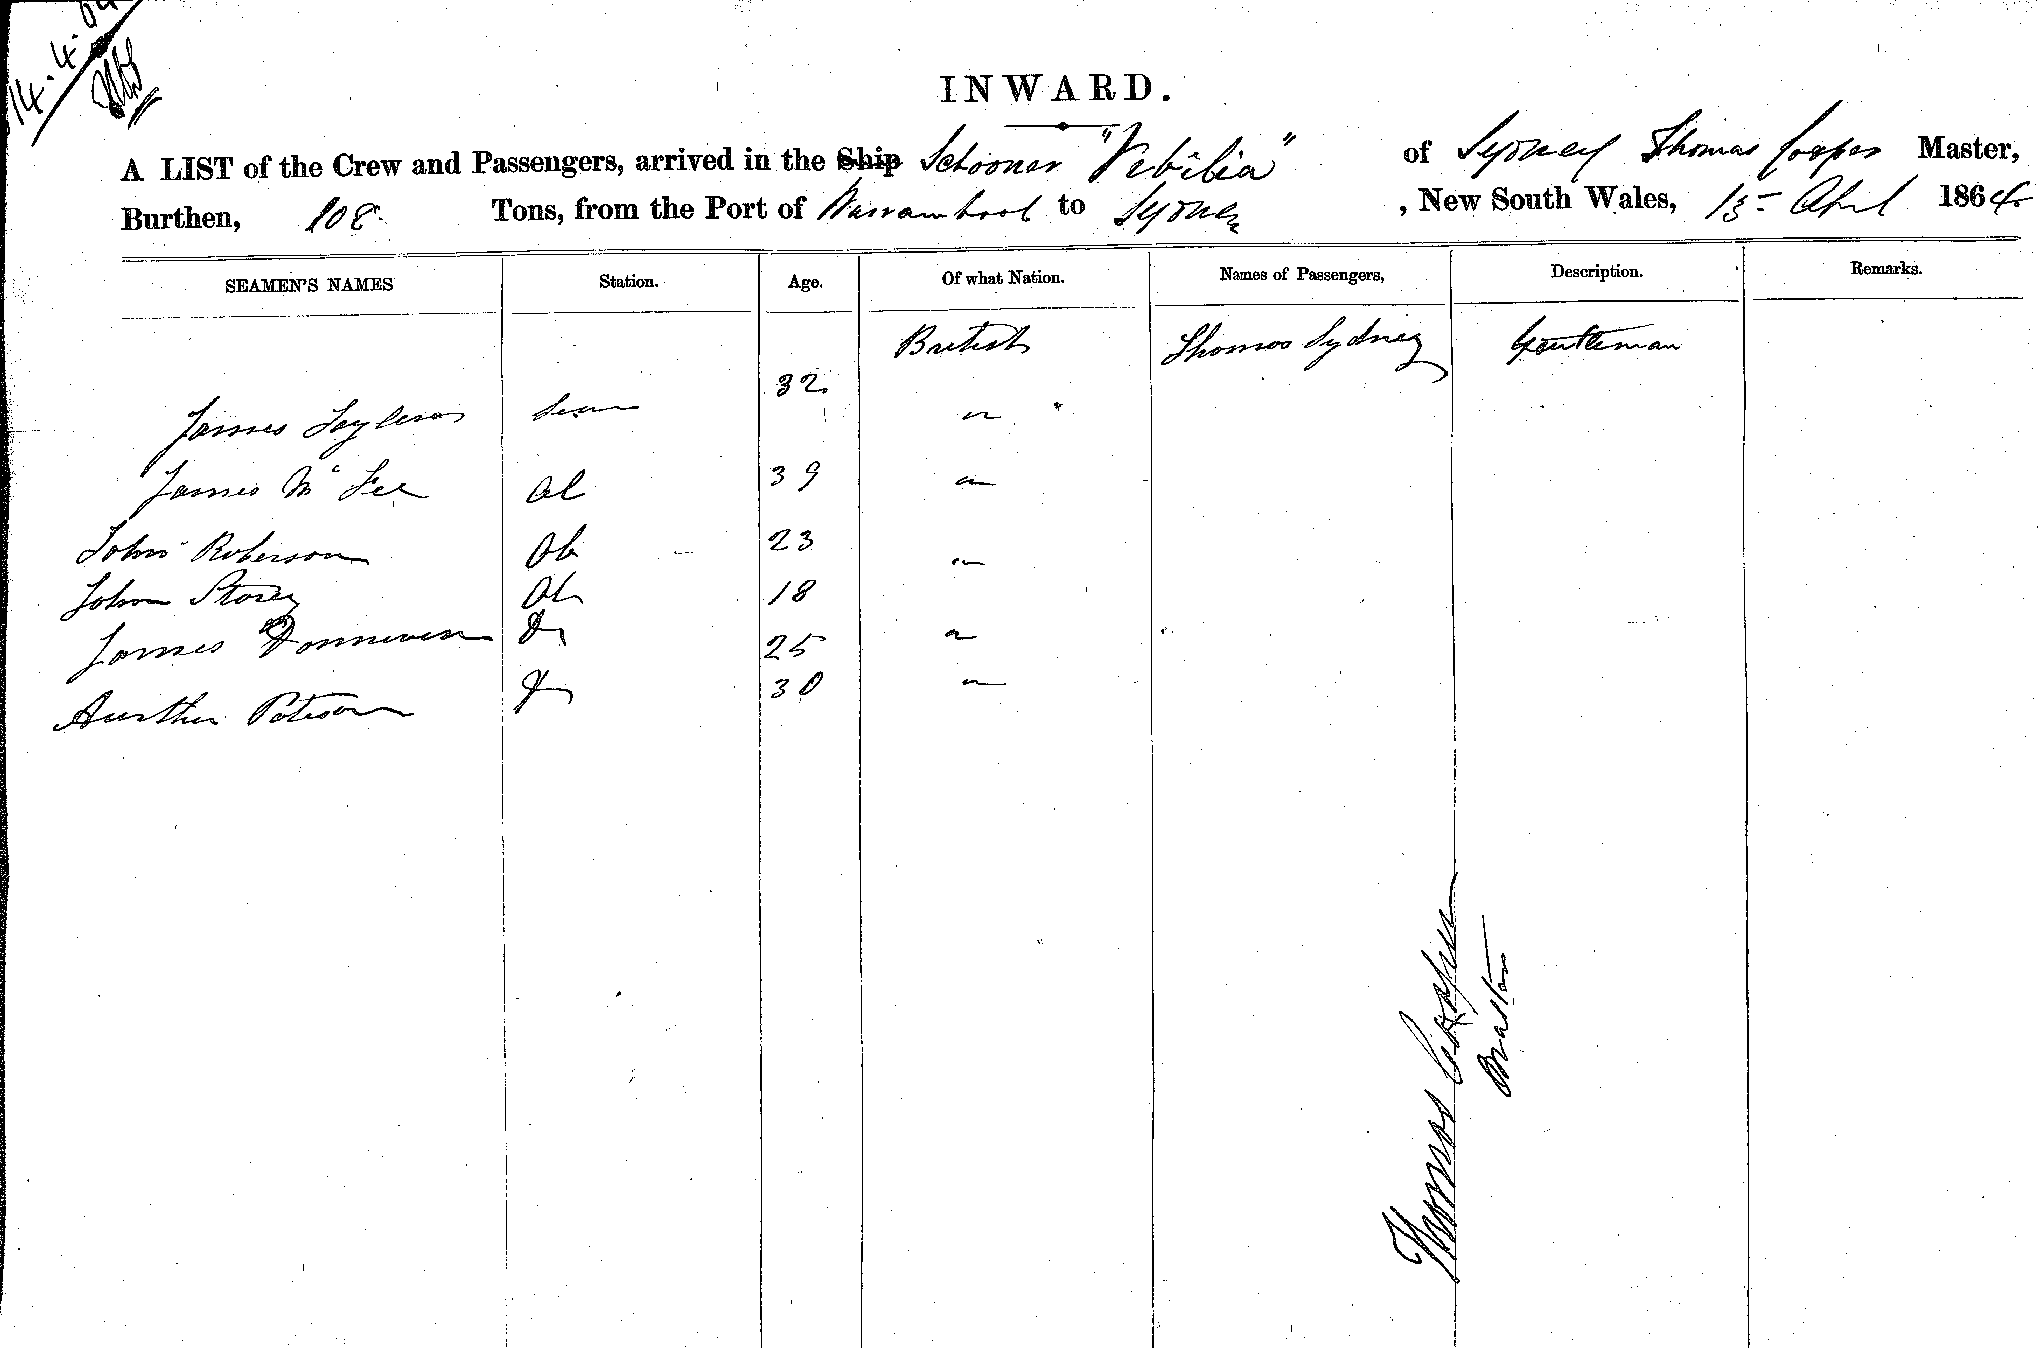 14.4.64
INWARD.
A LIST of the Crew and Passengers, arrived in the Ship Schooner "Vibilia" of Sydney Thomas Cooper Master,
Burthen, 108 Tons, from the Port of Warrambool to Sydney , New South Wales, 13 April 1864
SEAMEN'S NAMES Station. Age. Of what Nation. Names of Passengers, Description. Remarks.
British Thomas Sydney Gentleman
James 32
James Mc Fee 39
John Roberson Ab 23
John Storey Ab 18
James 25
Aurther Peterson 30
Thomas Cooper
Master